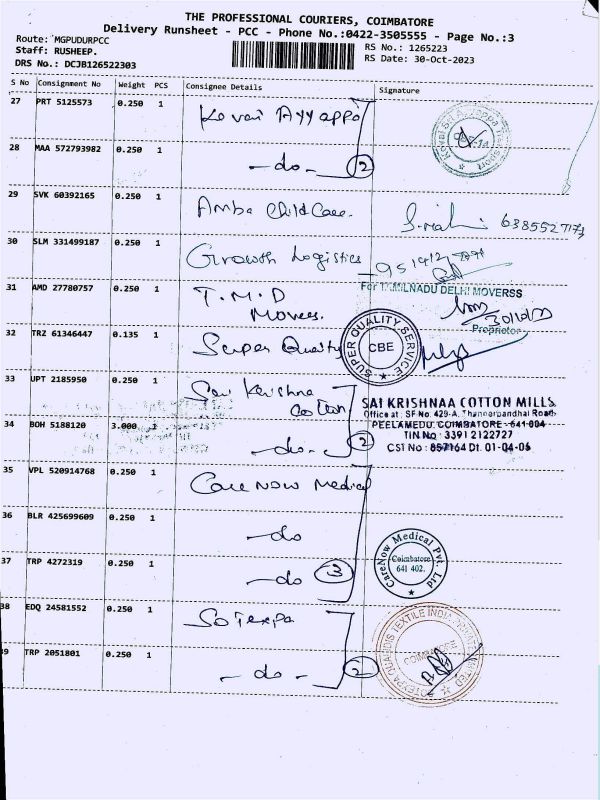 THE PROFESSIONAL COURIERS, COIMBATORE
Delivery Runsheet - PCC - Phone No.:0422-3505555 - Page No.:3
Route: MGPUDURPCC
RS No.: 1265223
Staff: RUSHEEP.
RS Date: 30-Oct-2023
DRS No.: DCJB126522303
S No Consignment No Weight PCS Consignee Details Signature
27 PRT 5125573 0.250 1 Kovai Ayyappa
28 MAA 572793982 0.250 1 - do - 2
29 SVK 60392165 0.250 1 Amba Child Care.
30 SLM 331499187 0.250 1 Growth Logistics
31 AMD 27780757 0.250 1 T.M.D
Movers.
For TAMILNADU DELHI MOVERSS
Proprietor
32 TRZ 61346447 0.135 1 Super Quality
SUPER QUALITY SERVICE
CBE
33 UPT 2185950 0.250 1 Sai Krishna
Cotton
SAI KRISHNAA COTTON MILLS
Office at : SF No. 429-A, Thaneerpandhal Road
PEELAMEDU, COIMBATORE - 641 004
TIN No : 33912122727
CST No : 857164 Dt. 01-04-06
34 BOH 5188120 3.000 1 - do - 2
35 VPL 520914768 0.250 1 Care Now Medical
36 BLR 425699609 0.250 1 - do
37 TRP 4272319 0.250 1 - do 3
CareNow Medical Pvt. Ltd
Coimbatore
641 402.
38 EDQ 24581552 0.250 1 SoTexpa
39 TRP 2051801 0.250 1 - do - 2
COIMBATORE